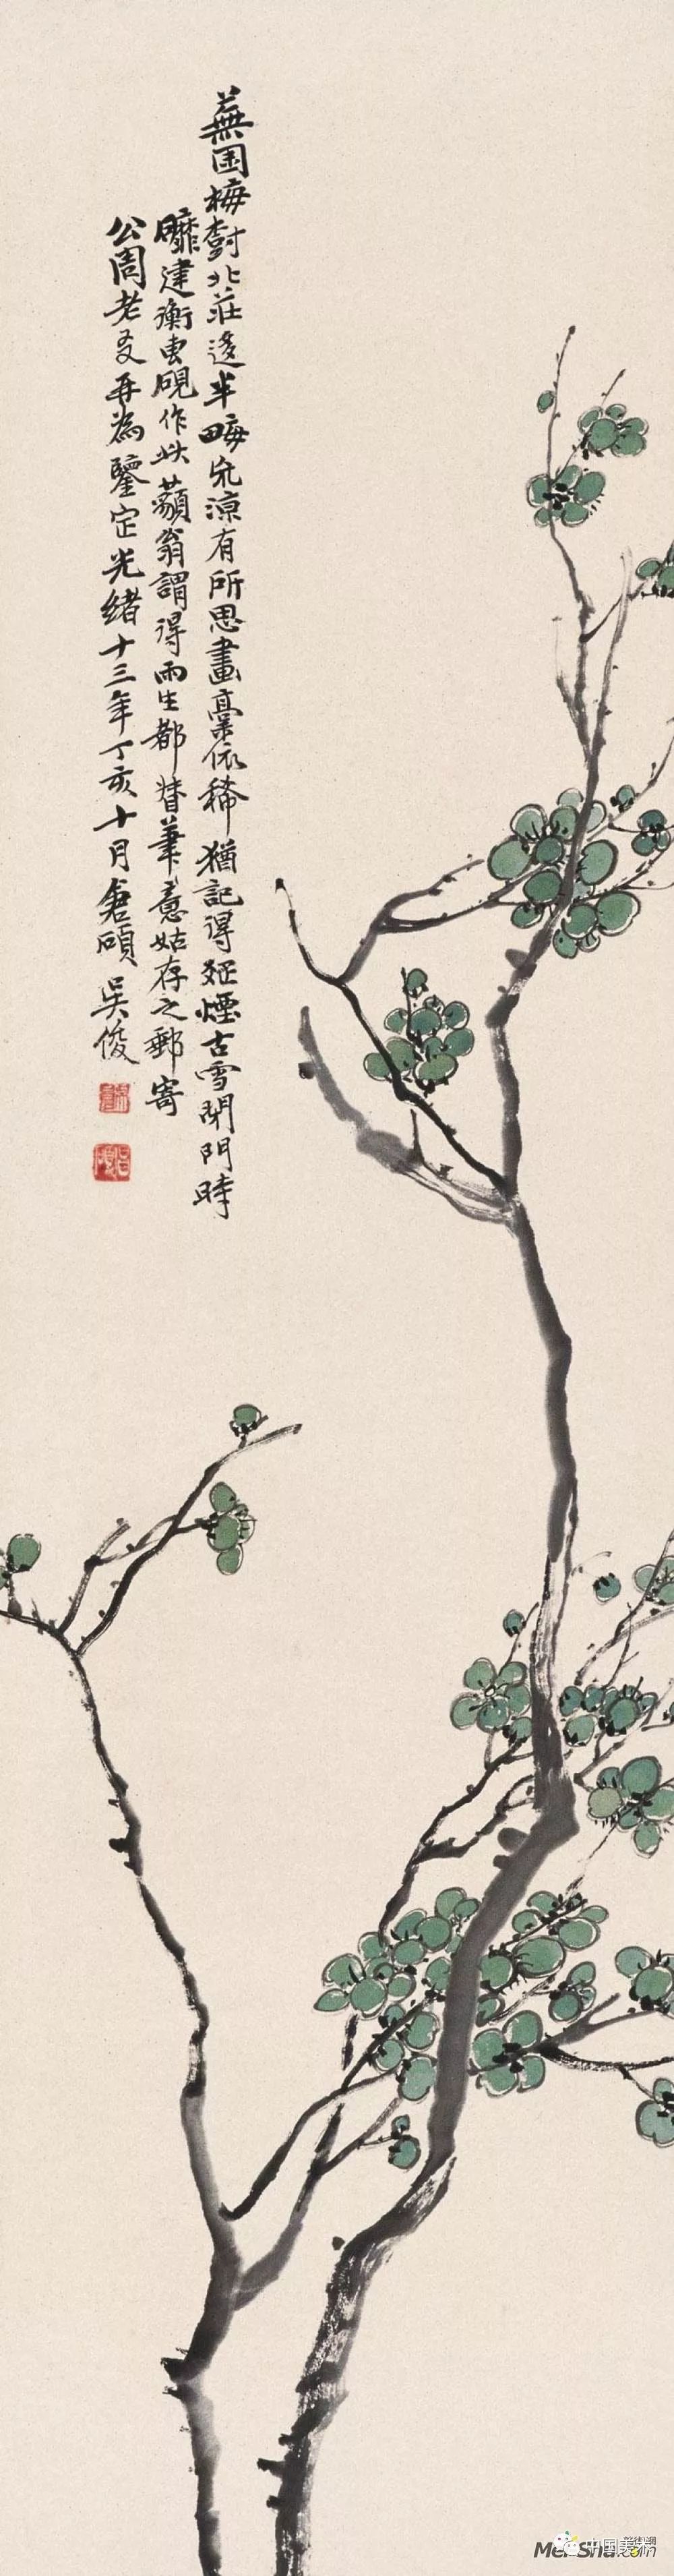 蕪园梅樹北莊迻半畮荒涼有所思畫稾依稀猶記得冱煙古雪閉門時
臞建衡曳硯作此蘋翁謂得雨生都督筆意姑存之郵寄
公周老友再為鑒定光緒十三年丁亥十月倉碩吴俊
中国美术
Mei-Sha.com